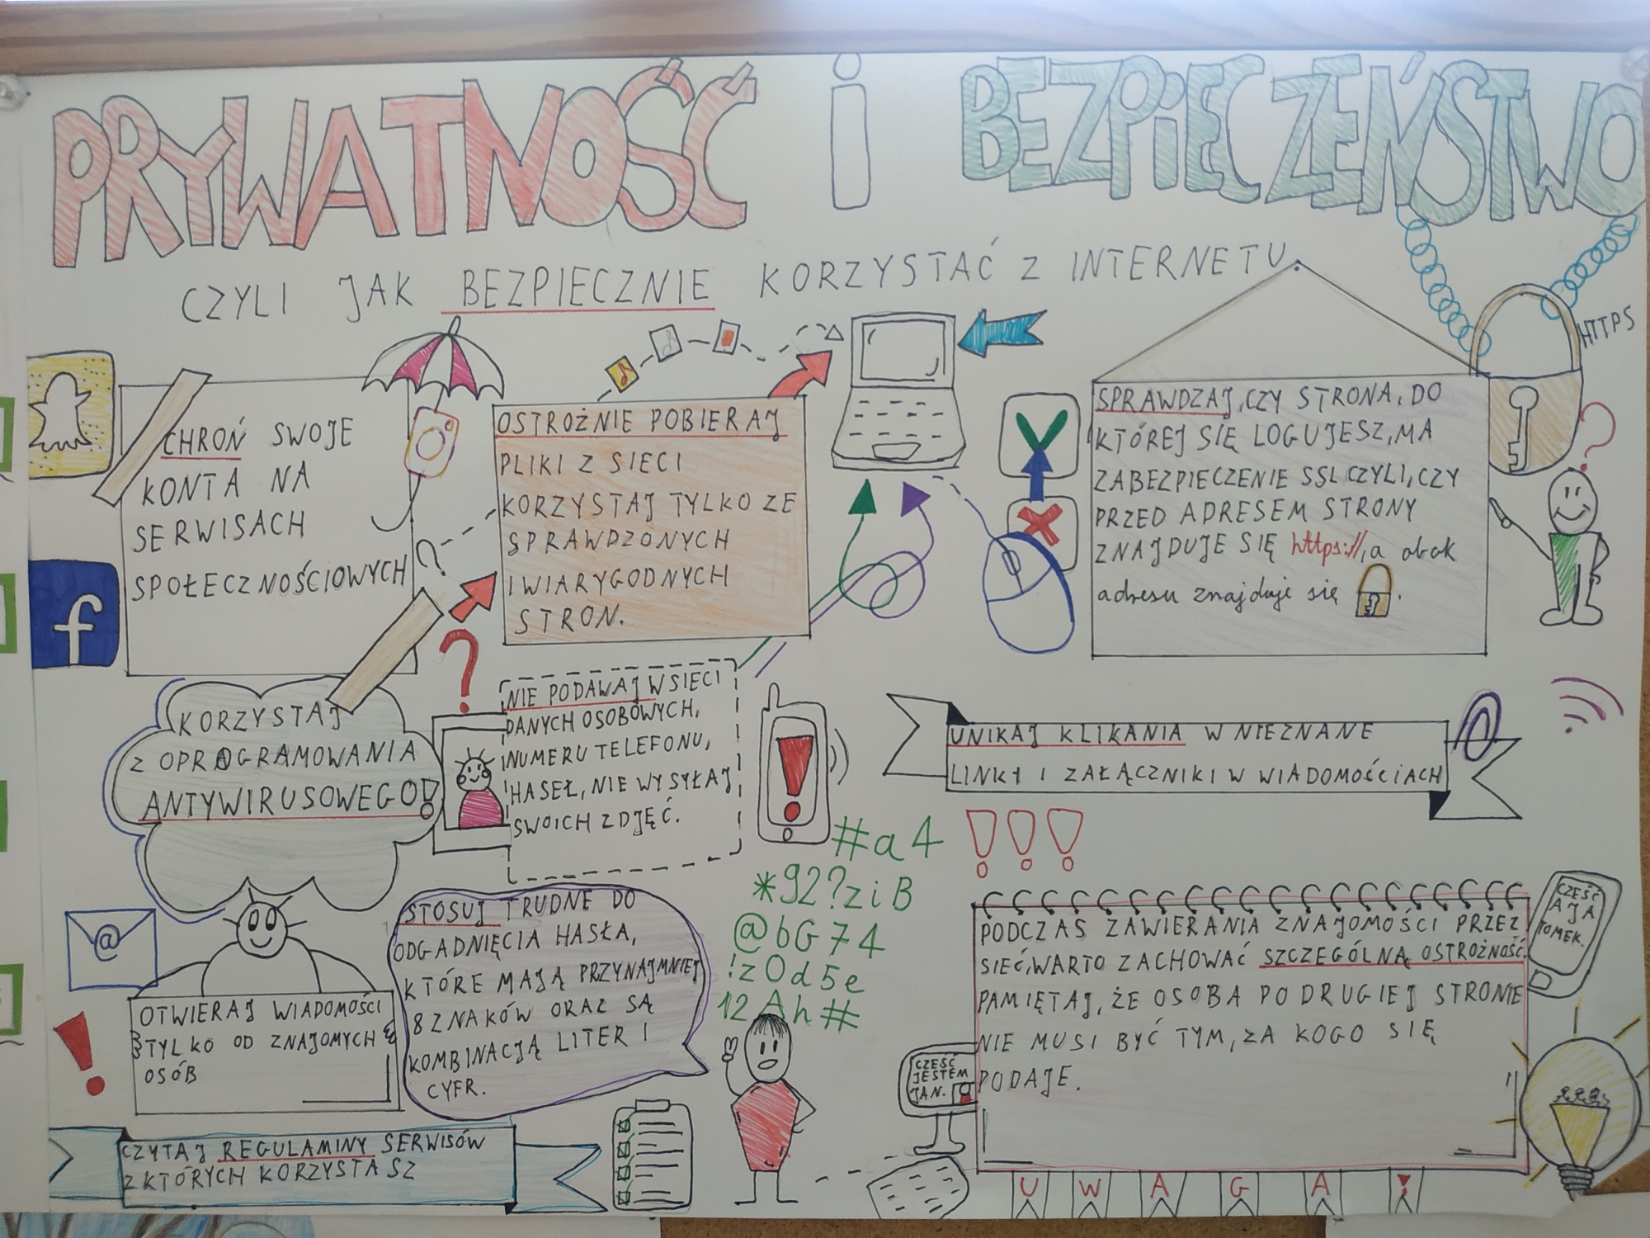 PRYWATNOŚĆ i BEZPIECZEŃSTWO
CZYLI JAK BEZPIECZNIE KORZYSTAĆ Z INTERNETU
HTTPS
CHROŃ SWOJE
KONTA NA
SERWISACH
SPOŁECZNOŚCIOWYCH
f
OSTROŻNIE POBIERAJ
PLIKI Z SIECI
KORZYSTAJ TYLKO ZE
SPRAWDZONYCH
I WIARYGODNYCH
STRON.
SPRAWDZAJ, CZY STRONA, DO
KTÓREJ SIĘ LOGUJESZ, MA
ZABEZPIECZENIE SSL CZYLI, CZY
PRZED ADRESEM STRONY
ZNAJDUJE SIĘ https://, a obok
adresu znajduje się .
?
KORZYSTAJ
Z OPROGRAMOWANIA
ANTYWIRUSOWEGO!
?
NIE PODAWAJ W SIECI
DANYCH OSOBOWYCH,
NUMERU TELEFONU,
HASEŁ, NIE WYSYŁAJ
SWOICH ZDJĘĆ.
!
UNIKAJ KLIKANIA W NIEZNANE
LINKI I ZAŁĄCZNIKI W WIADOMOŚCIACH
!!!
@
!
OTWIERAJ WIADOMOŚCI
TYLKO OD ZNAJOMYCH
OSÓB
STOSUJ TRUDNE DO
ODGADNIĘCIA HASŁA,
KTÓRE MAJĄ PRZYNAJMNIEJ
8 ZNAKÓW ORAZ SĄ
KOMBINACJĄ LITER I
CYFR.
#a4
*92?ziB
@bG74
!zOd5e
12Ah#
PODCZAS ZAWIERANIA ZNAJOMOŚCI PRZEZ
SIEĆ, WARTO ZACHOWAĆ SZCZEGÓLNĄ OSTROŻNOŚĆ.
PAMIĘTAJ, ŻE OSOBA PO DRUGIEJ STRONIE
NIE MUSI BYĆ TYM, ZA KOGO SIĘ
PODAJE.
CZEŚĆ
A JA
TOMEK.
CZEŚĆ
JESTEM
JAN.
CZYTAJ REGULAMINY SERWISÓW
Z KTÓRYCH KORZYSTASZ
UWAGA!